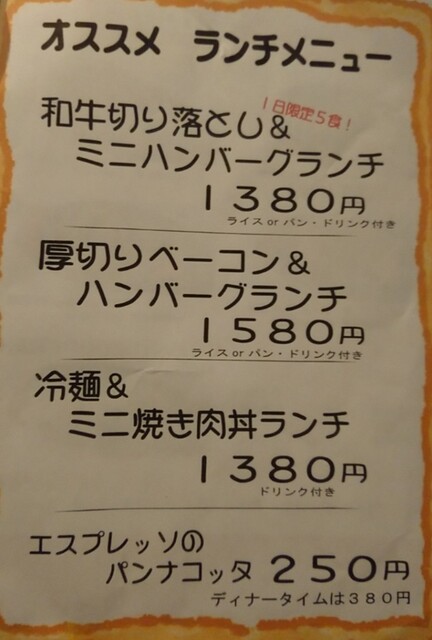 オススメ ランチメニュー
1日限定5食!
和牛切り落とし&
ミニハンバーグランチ
1380円
ライス or パン・ドリンク付き
厚切りベーコン&
ハンバーグランチ
1580円
ライス or パン・ドリンク付き
冷麺&
ミニ焼き肉丼ランチ
1380円
ドリンク付き
エスプレッソの
パンナコッタ 250円
ディナータイムは380円